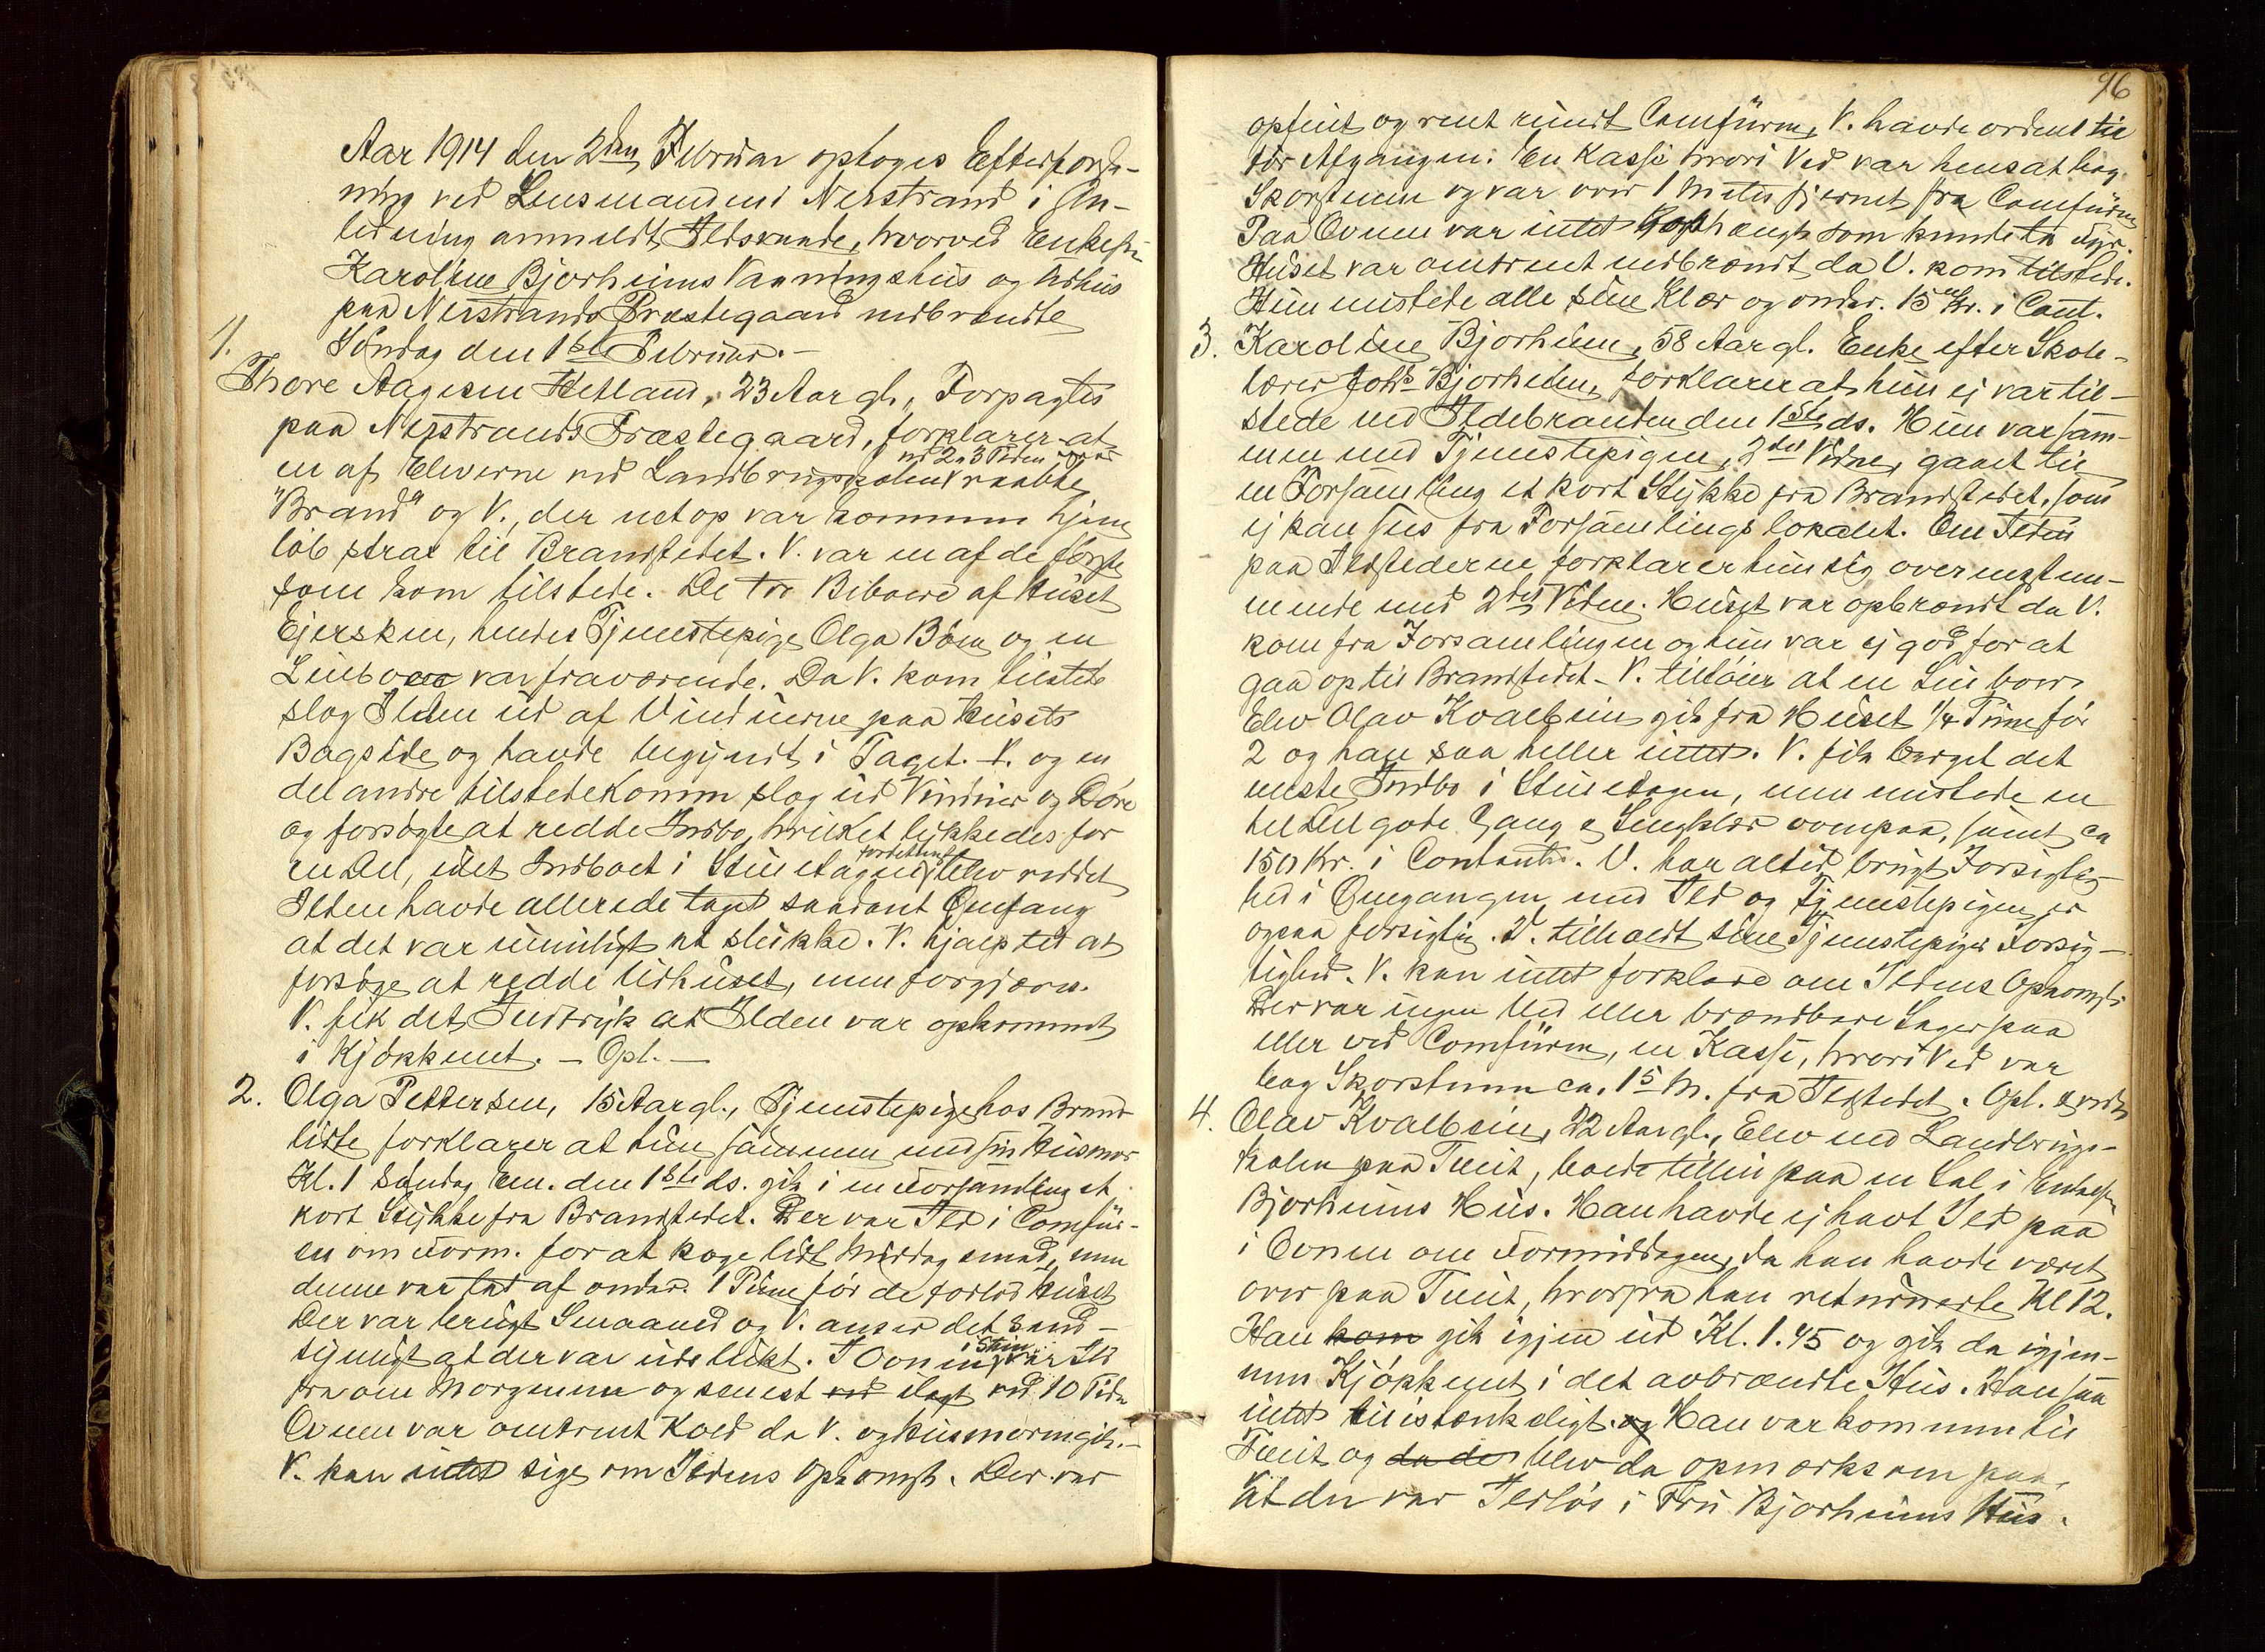 Aar 1914 den 2den Februar optoges Efterforsk-
ning ved Lensmanden i Nerstrand i An-
ledning anmeldt Ildsvaade, hvorved Enkefru
Karoline Bjorheims Vaaningshus og Udhus
paa Nerstrands Præstegaard nedbrændte
1. Söndag den 1ste Februar. -
Thore Aagesen Hetland, 23 Aar gl., Forpagter
paa Nerstrands Præstegaard, forklarer at
ved 2 a 3 Tiden
en af Eleverne ved Landbrugsskolen raabte
"Brand" og V., der netop var kommen hjem
löb strax til Brandstedet. V. var en af de förste
som kom tilstede. De tre Beboere af Huset
Ejersken, hendes Tjenestepige Olga Böen og en
Leiboer var fraværende. Da V. kom tilstede
slog Ilden ud af Vinduerne paa Husets
Bagside og havde begyndt i Taget. V. og en
del andre tilstedekomm slog ud Vinduer og Döre
og forsögte at redde Indbo, hvilket lykkedes for
en Del, idet Indboet i Stueetagen fordetmeste blev reddet
Ilden havde allerede taget saadant Omfang
at det var umuligt at slukke. V. hjalp til at
forsöge at redde Udhuset, men forgjæves.
V. fik det Indtryk at Ilden var opkommet
i Kjökkenet. - Opl. -
2. Olga Pettersen, 15 Aar gl., Tjenestepige hos Brand-
lidte forklarer at hun sammen med sin Husmor
Kl. 1 Söndag Em. den 1ste ds. gik i en Forsamling et
kort Stykke fra Brandstedet. Der var Ild i Comfur-
en om Form. for at koge lidt Middagsmad, men
denne var tat af omtr. 1 Time för de forlod Huset
Der var brugt Smaaved og V. anser det sand-
synligt at der var udslukt. I Ovnen i Stuen var Ild
fra om Morgenen og senest ved ilagt ved 10 Tiden
Ovnen var omtrent Kold da V. og Husmoren gik. -
V. kan intet sige om Ildens Opkomst. Der var
96
opfeiet og rent rundt Comfuren, V. havde ordnet til
för Afgangen. En Kasse hvori Ved var hensat bag
Skorstenen og var over 1 Meter fjernet fra Comfuren
Paa Ovnen var intet ophængt som kunde ta Fyr.
Huset var omtrent nedbrændt da V. kom tilstede.
Hun mistede alle sine Klær og omtr. 15 Kr. i Cont.
3. Karoline Bjorheim, 58 Aar gl. Enke efter Skole-
lærer Johs Bjorheim, forklarer at hun ej var til-
stede ved Ildebranden den 1ste ds. Hun var sam-
men med Tjenestepigen, 2det Vidne, gaaet til
en Forsamling et kort Stykke fra Brandstedet, som
ej kan sees fra Forsamlingslokalet. Om Ilden
paa Ildstederne forklarer hun sig overensstem-
mende med 2det Vidne. Huset var opbrændt da V.
kom fra Forsamlingen og hun var ej god for at
gaa op til Brandstedet - V. tilföier at en Leiboer
Elev Olav Kvalbein gik fra Huset 1/4 Time för
2 og han saa heller intet. V. fik berget det
meste Indbo i Stueetagen, men mistede en
hel Del gode Gang og Sengklær ovenpaa, samt ca
150 Kr. i Contanter. V. har altid brugt Forsigtig-
hed i Omgangen med Ild og Tjenestepigen er
ogsaa forsigtig. V. tilholdt sine Tjenestepiger Forsig-
tighed. V. kan intet forklare om Ildens Opkomst.
Der var ingen Ved eller brændbare Sager paa
eller ved Comfuren, en Kasse, hvori Ved var
bag Skorstenen ca. 15 M. fra Ildstedet. Opl. & vedt.
4. Olav Kvalbein, 22 Aar gl., Elev ved Landbrugs-
skolen paa Tveit, boede tilleie paa en Sal i Enkefru
Bjorheims Hus. Han havde ej havt Ild paa
i Ovnen om Formiddagen, da han havde været
over paa Tveit, hvorfra han returnerte Kl 12.
Han kom gik igjen ud Kl. 1.45 og gik da igjen-
nem Kjökkenet i det avbrændte Hus. Han saa
intet mistænkeligt. og Han var kommen til
Tveit og da de blev da opmærksom paa,
at der var Ildlös i Fru Bjorheims Hus.